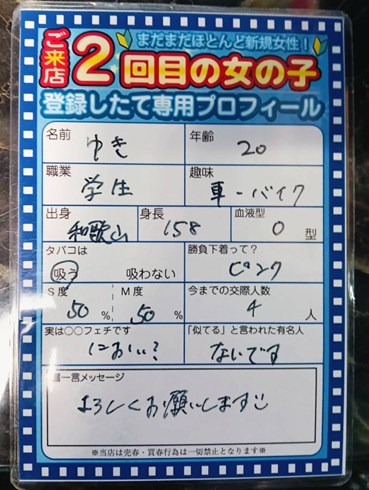 まだまだほとんど新規女性!
ご来店2回目の女の子
登録したて専用プロフィール
名前 ゆき 年齢 20
職業 学生 趣味 車・バイク
出身 和歌山 身長 158 血液型 O 型
タバコは 勝負下着って?
吸う 吸わない ピンク
S度 50 % M度 50 % 今までの交際人数 4 人
実は○○フェチです 「似てる」と言われた有名人
におい? ないです
一言メッセージ
よろしくお願いします
※当店は売春・買春行為は一切禁止となります※